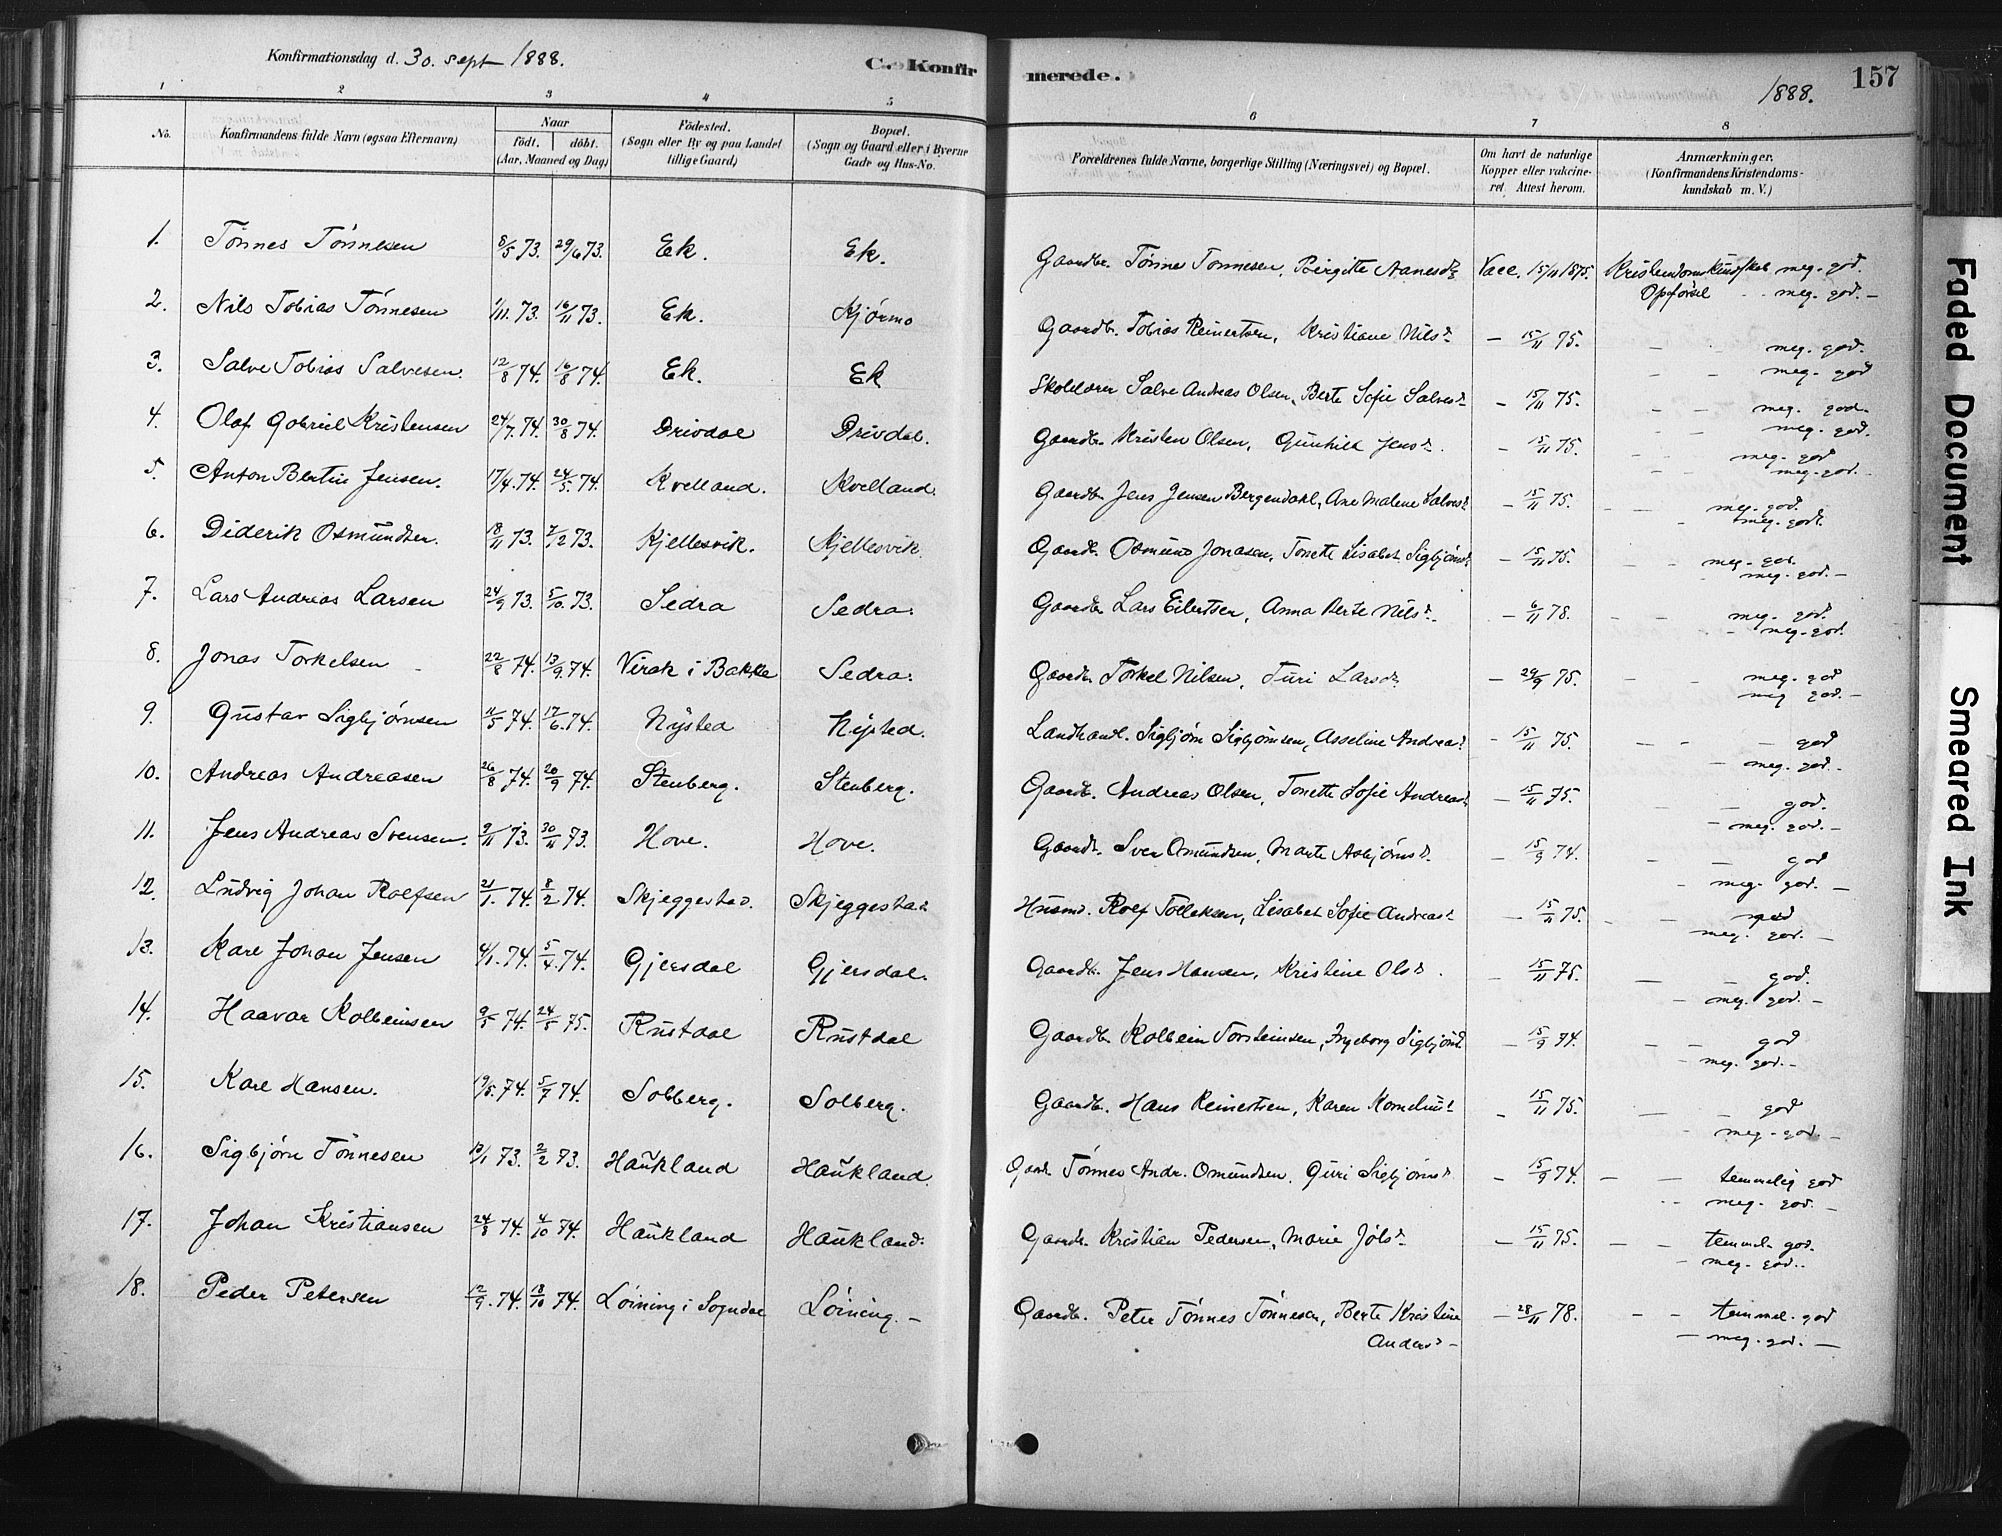 Konfirmationsdag d. 30. sept 1888.
C. Konfirmerede.
1888.
157
1 2 3 4 5 6 7 8
No.
Konfirmandens fulde Navn (ogsaa Efternavn)
Naar
födt. döbt.
(Aar, Maaned og Dag)
Födested.
(Sogn eller By og paa Landet
tillige Gaard)
Bopæl.
(Sogn og Gaard eller i Byerne
Gade og Hus-No.
Forældrenes fulde Navne, borgerlige Stilling (Næringsvei) og Bopæl.
Om havt de naturlige
Kopper eller vakcine-
ret. Attest herom.
Anmærkninger.
(Konfirmandens Kristendoms-
kundskab m. V.)
1. Tönnes Tönnesen 8/5 73. 29/6 73. Ek. Ek. Gaardbr. Tönnes Tonnesen, Birgitte Aanesdr Vacc. 15/11 1875. Kristendomskundskab meg. god.
Opförsel - - meg. god. -
2. Nils Tobias Tönnesen 1/11. 73. 16/11 73. Ek. Kjörmo Gaardb. Tobias Reinertsen, Kristiane Nilsd. - 15/11 75. - meg. god.
- - meg. god
3. Salve Tobias Salvesen. 12/8 74. 16/8 74. Ek. Ek Skolelærer Salve Andreas Olsen, Berte Sofie Salvesd. - 15/11 75. - - meg. god.
- - meg. god.
4. Olaf Gabriel Kristensen 24/7. 74. 30/8 74. Drivdal Drivdal. Gaardb. Kristen Olsen, Gunhild Jensd. - 15/11 75. - - meg. god
- - meg. god.
5. Anton Bertin Jensen. 17/4. 74. 24/5. 74. Kvelland. Kvelland. Gaardb. Jens Jensen Bergendahl, Ane Malene Salvesd. - 15/11 75. - - meg. god.
- meg. godt.
6. Diderik Osmundsen. 18/11 73. 7/12 73. Kjellesvik. Kjellesvik. Gaardb. Osmund Jonasen, Tonette Lisabet Sigbjörnsd. - 15/11 75. - - meg. god.
- meg. god. -
7. Lars Andreas Larsen 24/9 73. 5/10. 73. Sedra Sedra. Gaardb. Lars Eilertsen, Anna Berte Nilsd. - 6/11 78. - - meg. god.
- meg. god.
8. Jonas Torkelsen 22/8 74. 13/9. 74. Virak i Bakke Sedra. Gaardb. Torkel Nilsen, Turi Larsd. - 29/9 75. - - meg. god
meg god. -
9. Gustav Sigbjörnsen 11/5 74. 17/6. 74. Nysted Nysted. Landhandl. Sigbjörn Sigbjörnsen, Asseline Andreasd. - 15/11 75. - - - god
- meg. god.
10. Andreas Andreasen 26/8 74. 20/9 74. Stenberg. Stenberg. Gaardb. Andreas Olsen, Tonette Sofie Andreasd. - 15/11 75. - - god.
- meg. god. -
11. Jens Andreas Svensen. 9/11 73. 30/11 73. Hove. Hove. Gaardb. Sven Omundsen, Marte Asbjörnsd. - 15/9 74. - - god
- meg. god. -
12. Ludvig Johan Rolfsen 21/1. 74. 8/2 74. Skjeggestad. Skjeggestad Husmd. Rolf Tollaksen, Lisabet Sofie Andreasd. - 15/11 75. - - god
meg. god. -
13. Karl Johan Jensen 4/1. 74. 5/4. 74. Gjersdal Gjersdal. Gaardb. Jens Hansen, Kristine Olsd. - 15/11 75. - - god.
- meg. god. -
14. Haavar Kolbeinsen 9/5 74. 24/5 75. Rustdal Rustdal Gaardb. Kolbein Torsteinsen, Ingeborg Sigbjörnsd. - 15/9 74. - - god
- meg. god. -
15. Karl Hansen. 19/5. 74. 5/7 74. Solberg. Solberg. Gaardb. Hans Reinertsen, Karen Korneliusd. - 15/11 75. - - god
- meg. god. -
16. Sigbjörn Tönnesen 12/1 73. 2/2 73. Haukland Haukland. Gaardb. Tönnes Andr. Omundsen. Guri Sigbjörnsd. - 15/9 74. - - temmelig god
- - meg. god. -
17. Johan Kristiansen 24/8 74. 4/10 74. Haukland Haukland. Gaardb. Kristian Pedersen, Marie Jölsd. - 15/11 75. - - temmel. god.
- meg. god..
18. Peder Petersen 12/9. 74. 18/10 74. Löining i Sogndal Löining. - Gaardb. Peter Tönnes Tönnesen, Berte Kristine
Andersd. - - 28/11 78. - - temmel. god
- meg. god. -
Faded Document
Smeared Ink